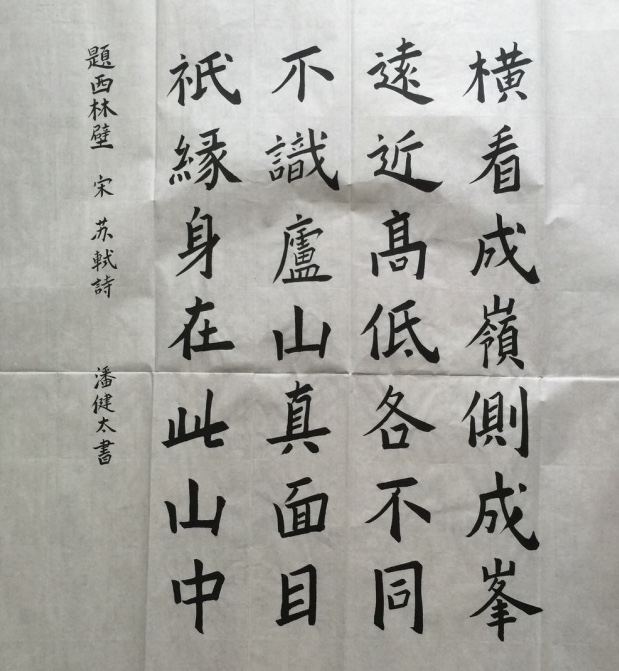 橫看成嶺側成峯
遠近髙低各不同
不識廬山真面目
祇緣身在此山中
題西林壁 宋 苏軾詩 潘健太書